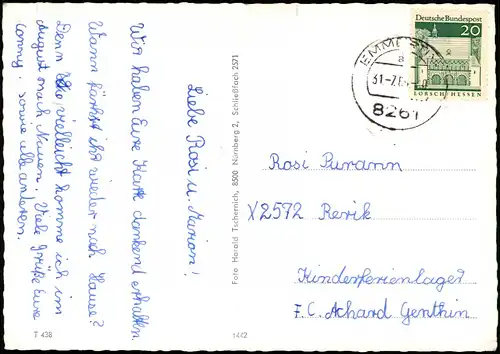 Liebe Rosi u. Marion!
Wir haben Eure Karte dankend erhalten
Wann fährst ihr wieder nach Hause?
Denn vielleicht komme ich im
August nach Viele Grüße Eure
Conny. sowie alle anderen.
T 438
1442
Foto Harald Tschernich, 8500 Nürnberg 2, Schließfach 2571
Deutsche Bundespost
20
LORSCH/HESSEN
a
8261
Rosi
X2572 Rerik
Kinderferienlager
F.C. Achard Genthin